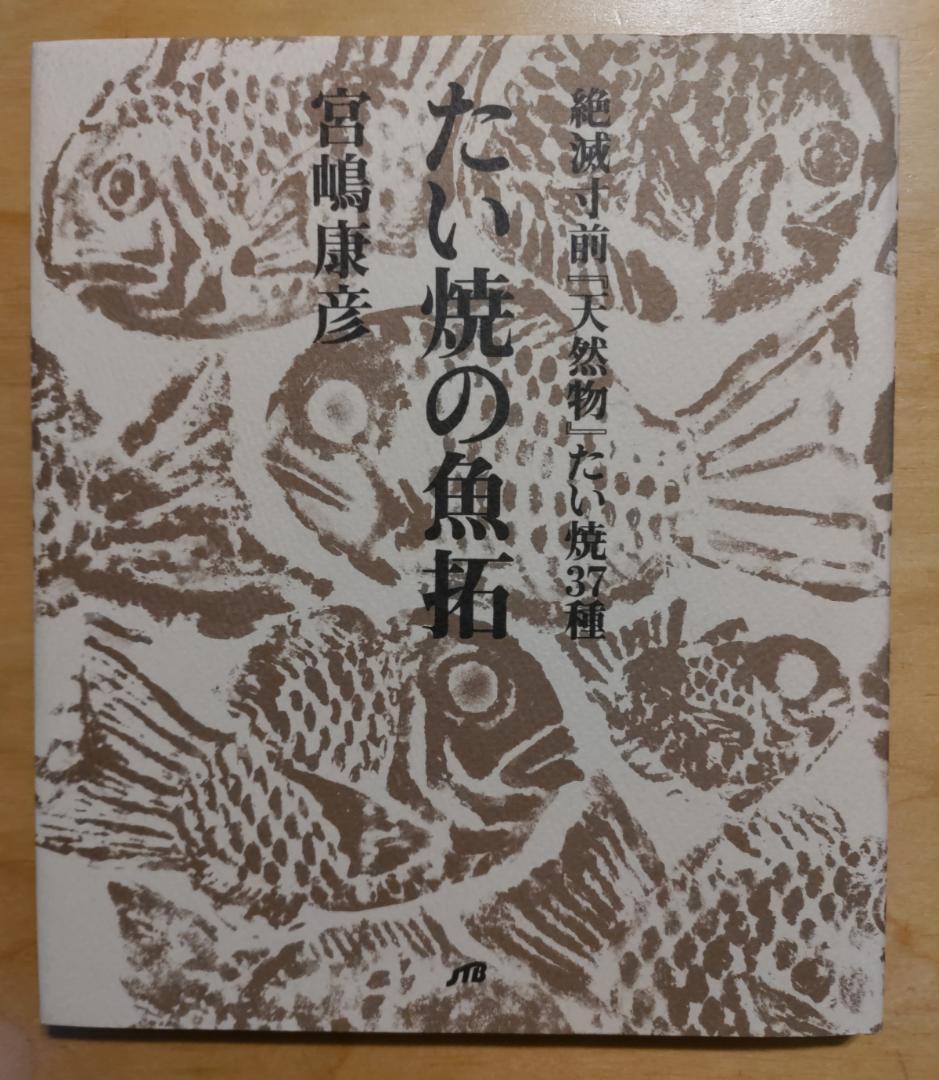 絶滅寸前『天然物』たい焼37種
たい焼の魚拓
宮嶋康彦
JTB